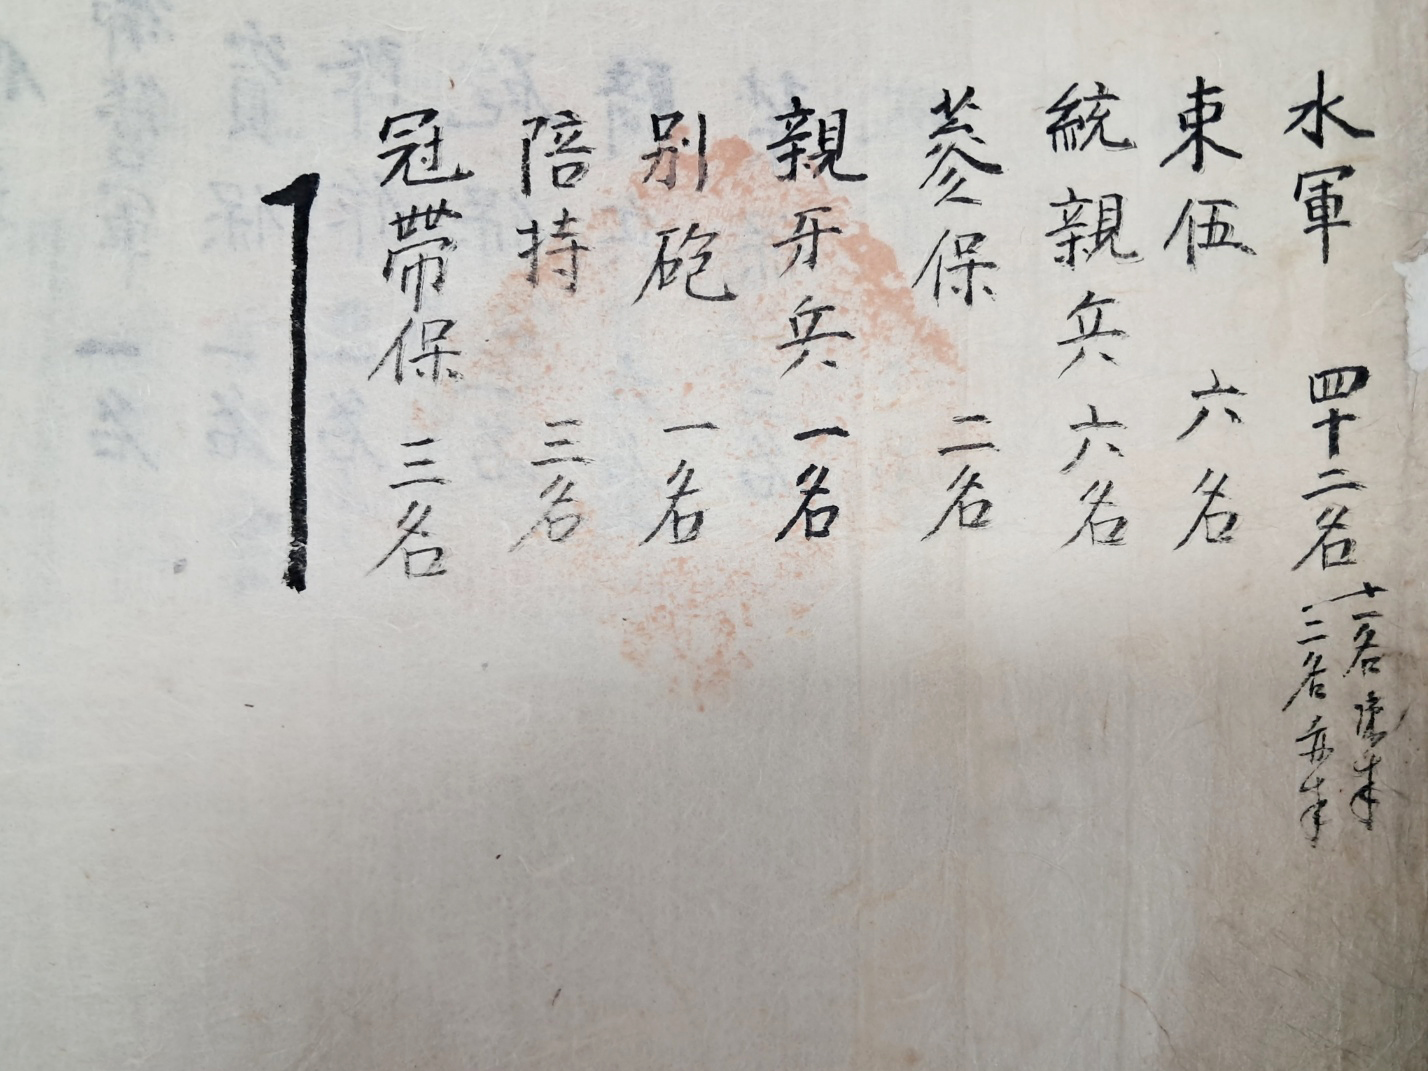 水軍 四十二名 十一名陳來
三名亦來
束伍 六名
統親兵 六名
蔘保 二名
親牙兵 一名
別砲 一名
陪持 三名
冠帶保 三名